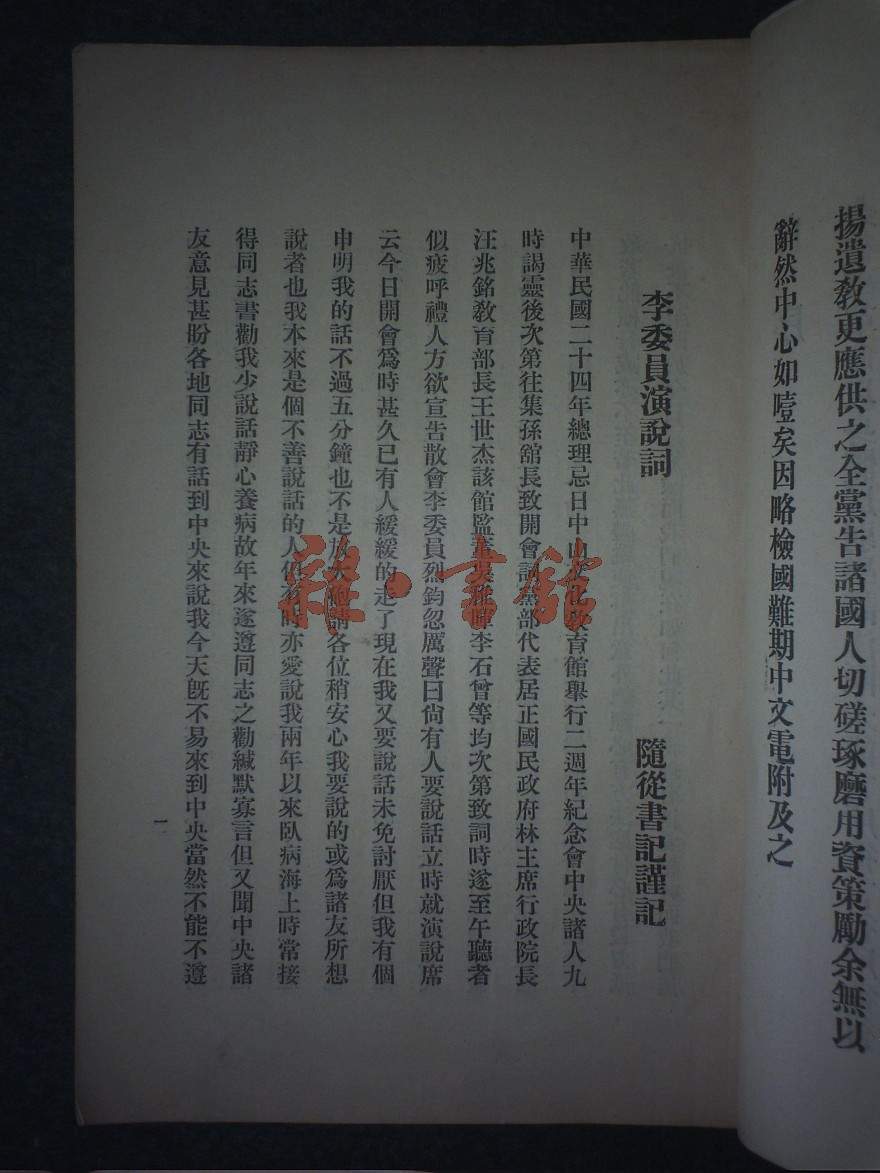 揚遺敎更應供之全黨告諸國人切磋琢磨用資策勵余無以
辭然中心如噎矣因略檢國難期中文電附及之
李委員演說詞
隨從書記謹記
中華民國二十四年總理忌日中山文化敎育館舉行二週年紀念會中央諸人九
時謁靈後次第往集孫舘長致開會詞黨部代表居正國民政府林主席行政院長
汪兆銘敎育部長王世杰該館監董吳稚暉李石曾等均次第致詞時遂至午聽者
似疲呼禮人方欲宣告散會李委員烈鈞忽厲聲曰尙有人要說話立時就演說席
云今日開會爲時甚久已有人緩緩的走了現在我又要說話未免討厭但我有個
申明我的話不過五分鐘也不是放大砲請各位稍安心我要說的或爲諸友所想
說者也我本來是個不善說話的人但有時亦愛說我兩年以來臥病海上時常接
得同志書勸我少說話靜心養病故年來遂遵同志之勸緘默寡言但又聞中央諸
友意見甚盼各地同志有話到中央來說我今天旣不易來到中央當然不能不遵
一
雜·書館